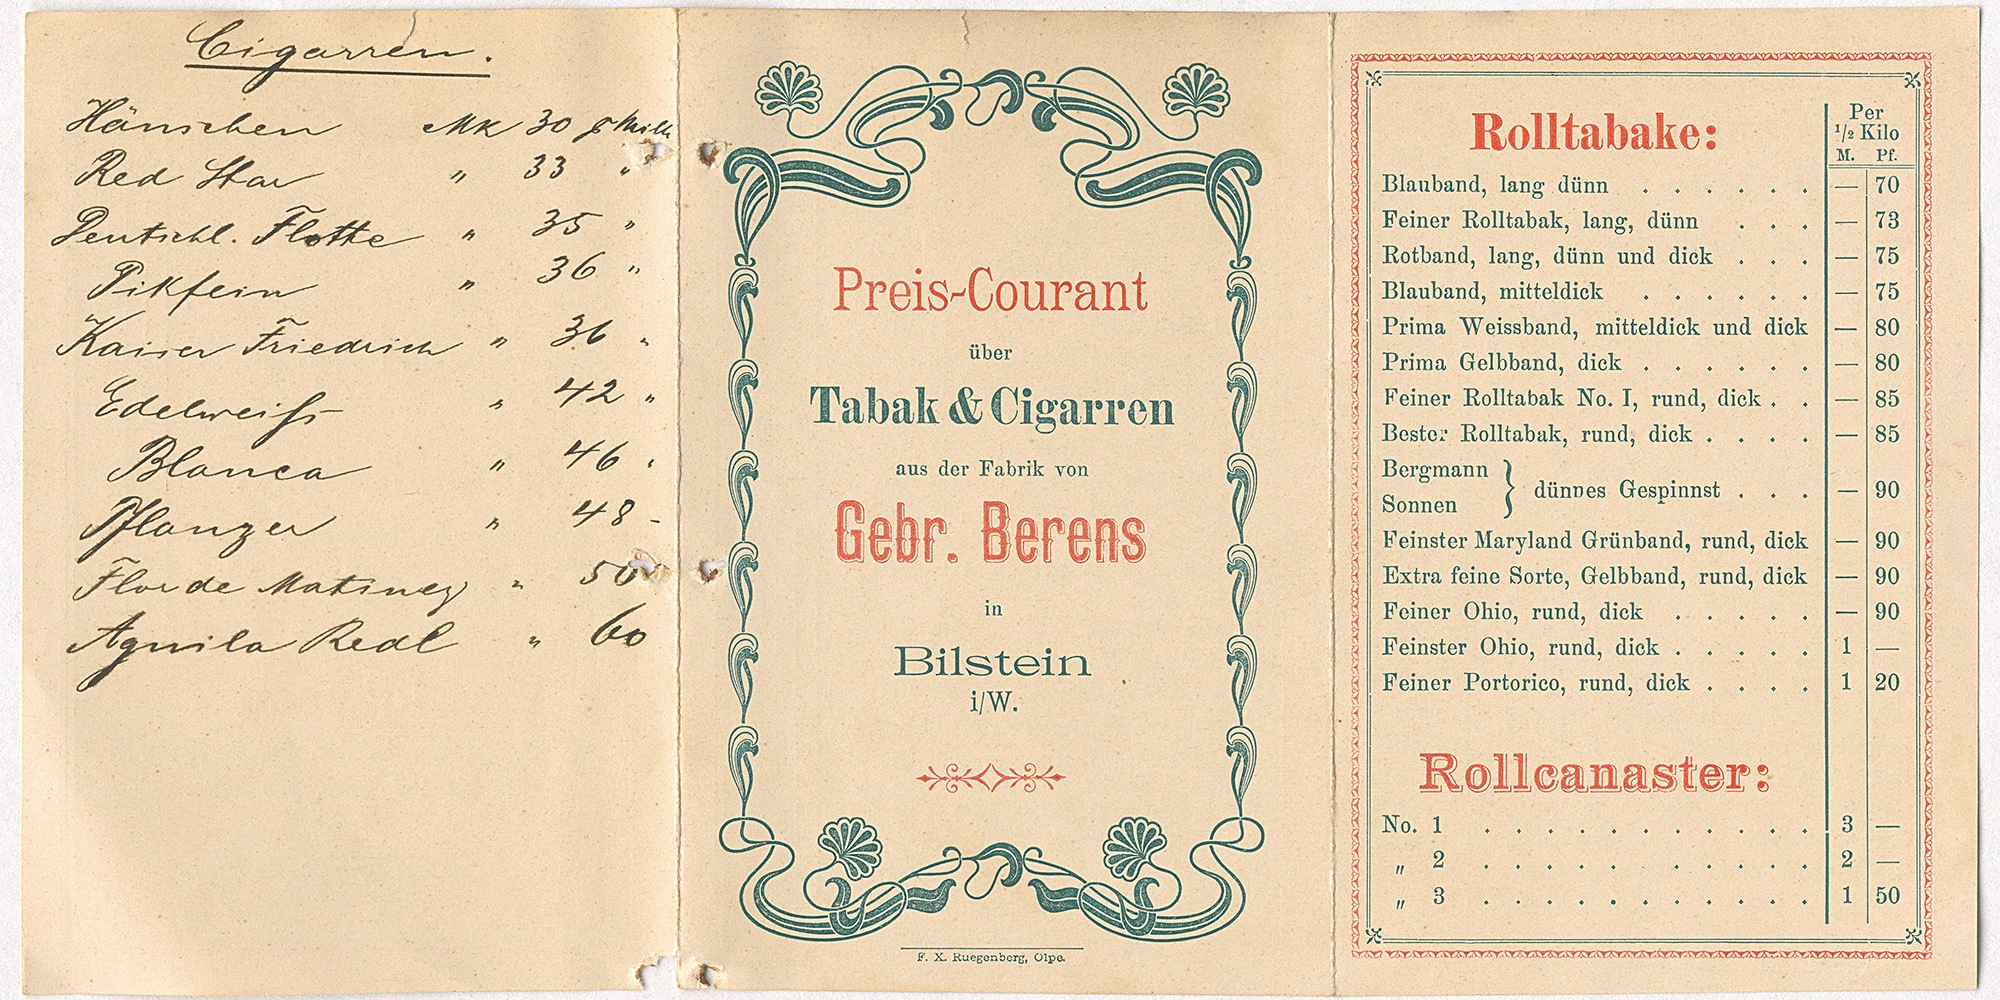 Cigarren.
Hänschen Mk 30 p Mille
Red Star " 33 "
Deutschl. Flotte " 35 "
Pikfein " 36 "
Kaiser Friedrich " 36 "
Edelweiß " 42 "
Blanca " 46 "
Pflanzer " 48 -
Flor de Matiney " 50
Aguila Real " 60
Preis-Courant
über
Tabak & Cigarren
aus der Fabrik von
Gebr. Berens
in
Bilstein
i/W.
F. X. Ruegenberg, Olpe.
Rolltabake:
Per
1/2 Kilo
M. Pf.
Blauband, lang dünn . . . . . . — 70
Feiner Rolltabak, lang, dünn . . . — 73
Rotband, lang, dünn und dick . . . — 75
Blauband, mitteldick . . . . . . — 75
Prima Weissband, mitteldick und dick — 80
Prima Gelbband, dick . . . . . . — 80
Feiner Rolltabak No. I, rund, dick . . — 85
Bester Rolltabak, rund, dick . . . . — 85
Bergmann
Sonnen } dünnes Gespinnst . . . — 90
Feinster Maryland Grünband, rund, dick — 90
Extra feine Sorte, Gelbband, rund, dick — 90
Feiner Ohio, rund, dick . . . . . — 90
Feinster Ohio, rund, dick . . . . . 1 —
Feiner Portorico, rund, dick . . . . 1 20
Rollcanaster:
No. 1 . . . . . . . . . . . 3 —
" 2 . . . . . . . . . . 2 —
" 3 . . . . . . . . . . . 1 50